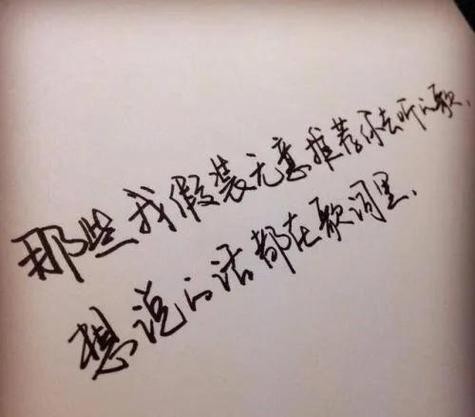 那些我假装无意推荐你去听的歌，
想说的话都在歌词里.